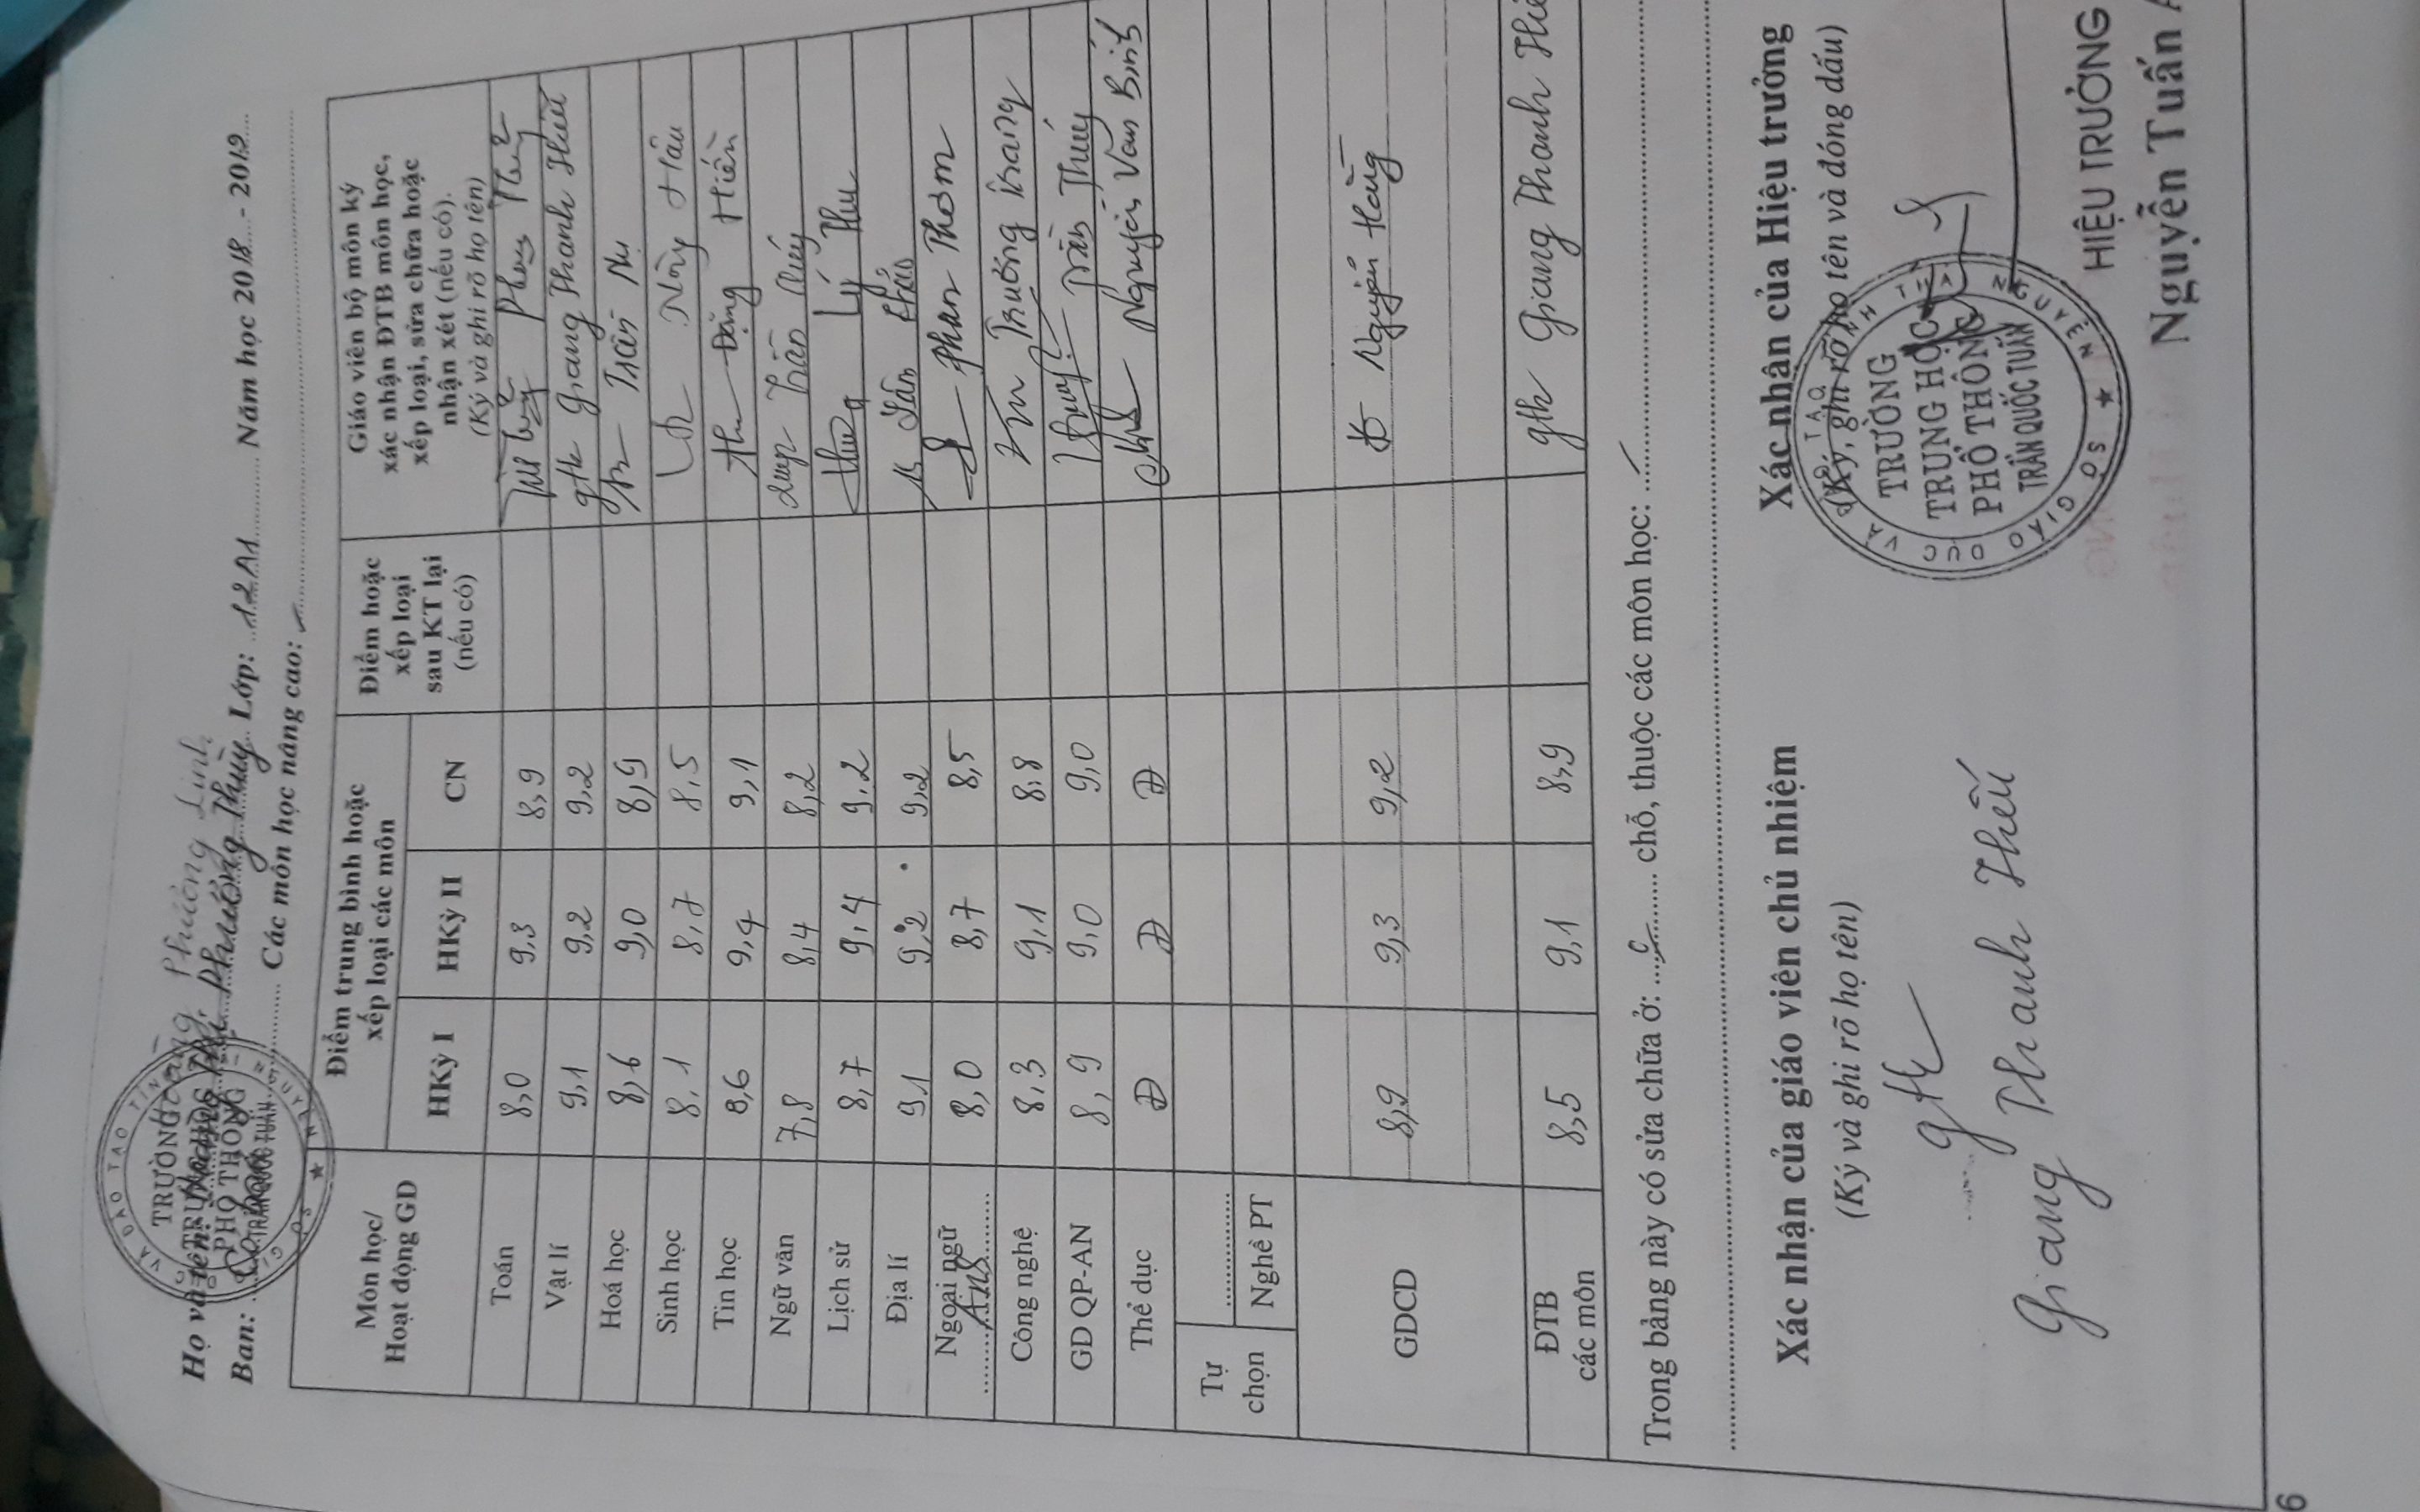 Phương Linh
Họ và tên: Hoàng Thị Phương Thùy Lớp: 12A1 Năm học 2018 - 2019
Ban: Cơ bản Các môn học nâng cao:
TRƯỜNG
TRUNG HỌC
PHỔ THÔNG
TRẦN QUỐC TUẤN
Môn học/ Hoạt động GD
Điểm trung bình hoặc xếp loại các môn
Điểm hoặc xếp loại sau KT lại (nếu có)
Giáo viên bộ môn ký xác nhận ĐTB môn học, xếp loại, sửa chữa hoặc nhận xét (nếu có).
(Ký và ghi rõ họ tên)
HKỳ I HKỳ II CN
Toán 8,0 9,3 8,9
Vật lí 9,1 9,2 9,2 gth Giang Thanh Hiếu
Hoá học 8,6 9,0 8,9 Trần
Sinh học 8,1 8,7 8,5 Nông
Tin học 8,6 9,4 9,1 Đặng Hiền
Ngữ văn 7,8 8,4 8,2 Trần
Lịch sử 8,7 9,4 9,2 Lý Thu
Địa lí 9,1 9,2 9,2 Lâm
Ngoại ngữ Anh 8,0 8,7 8,5 Phan Thơm
Công nghệ 8,3 9,1 8,8 Trương Trang
GD QP-AN 8,9 9,0 9,0 Trần Thúy
Thể dục Đ Đ Đ Nguyễn Văn Bình
Tự chọn
Nghề PT
GDCD 8,9 9,3 9,2 Nguyễn Hằng
ĐTB các môn 8,5 9,1 8,9 gth Giang Thanh
Trong bảng này có sửa chữa ở: chỗ, thuộc các môn học:
Xác nhận của giáo viên chủ nhiệm
(Ký và ghi rõ họ tên)
gth
Giang Thanh Hiếu
Xác nhận của Hiệu trưởng
(Ký, ghi rõ họ tên và đóng dấu)
TRƯỜNG
TRUNG HỌC
PHỔ THÔNG
TRẦN QUỐC TUẤN
HIỆU TRƯỞNG
Nguyễn Tuấn
6